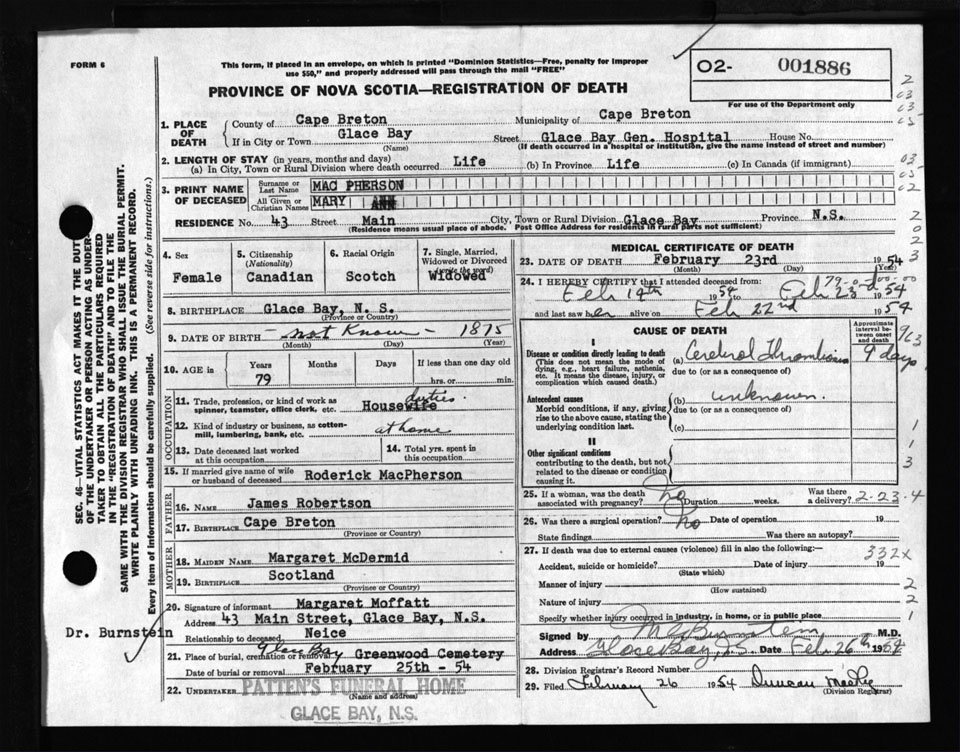 FORM 6
This form, if placed in an envelope, on which is printed "Dominion Statistics—Free, penalty for improper
use $50," and properly addressed will pass through the mail "FREE"
O2- 001886
For use of the Department only
PROVINCE OF NOVA SCOTIA—REGISTRATION OF DEATH
1. PLACE OF DEATH
County of Cape Breton Municipality of Cape Breton
If in City or Town Glace Bay Street Glace Bay Gen. Hospital House No.
(Name) (If death occurred in a hospital or institution, give the name instead of street and number)
2. LENGTH OF STAY (in years, months and days)
(a) In City, Town or Rural Division where death occurred Life (b) In Province Life (c) In Canada (if immigrant)
3. PRINT NAME OF DECEASED
Surname or Last Name MAC PHERSON
All Given or Christian Names MARY
RESIDENCE No. 43 Street Main City, Town or Rural Division Glace Bay Province N.S.
(Residence means usual place of abode. Post Office Address for residents in rural parts not sufficient)
4. Sex Female
5. Citizenship (Nationality) Canadian
6. Racial Origin Scotch
7. Single, Married, Widowed or Divorced (write the word) Widowed
8. BIRTHPLACE Glace Bay, N. S.
(Province or Country)
9. DATE OF BIRTH - not Known - 1875
(Month) (Day) (Year)
10. AGE in Years Months Days If less than one day old
79 hrs. or min.
OCCUPATION
11. Trade, profession or kind of work as
spinner, teamster, office clerk, etc. Housewife duties
12. Kind of industry or business, as cotton-
mill, lumbering, bank, etc. at home
13. Date deceased last worked
at this occupation
14. Total yrs. spent in
this occupation
15. If married give name of wife
or husband of deceased Roderick MacPherson
FATHER
16. Name James Robertson
17. Birthplace Cape Breton
(Province or Country)
MOTHER
18. Maiden Name Margaret McDermid
19. Birthplace Scotland
(Province or Country)
20. Signature of informant Margaret Moffatt
Address 43 Main Street, Glace Bay, N.S.
Relationship to deceased Neice
Dr. Burnstein
21. Place of burial, cremation or removal Glace Bay Greenwood Cemetery
Date of burial or removal February 25th - 54
22. UNDERTAKER PATTEN'S FUNERAL HOME
(Name and address)
GLACE BAY, N.S.
MEDICAL CERTIFICATE OF DEATH
23. DATE OF DEATH February 23rd 1954
(Month) (Day) (Year)
79-0-0 00-00
24. I HEREBY CERTIFY that I attended deceased from:
Feb 14th 1954 to Feb 23rd 1954
and last saw her alive on Feb 22nd 1954
CAUSE OF DEATH
Approximate interval between onset and death
I
Disease or condition directly leading to death
(This does not mean the mode of
dying, e.g., heart failure, asthenia,
etc. It means the disease, injury, or
complication which caused death.)
(a) Cerebral Thrombosis 9 days
due to (or as a consequence of)
Antecedent causes
Morbid conditions, if any, giving
rise to the above cause, stating the
underlying condition last.
(b) unknown.
due to (or as a consequence of)
(c)
II
Other significant conditions
contributing to the death, but not
related to the disease or condition
causing it.
25. If a woman, was the death
associated with pregnancy? no Duration weeks. Was there
a delivery? 2-23-4
26. Was there a surgical operation? no Date of operation 19
State findings Was there an autopsy?
27. If death was due to external causes (violence) fill in also the following:— 332x
Accident, suicide or homicide? Date of injury 19
(State which)
Manner of injury
(How sustained)
Nature of injury
Specify whether injury occurred in industry, in home, or in public place
Signed by M G Burnstein M.D.
Address Glace Bay, N.S. Date Feb 26th 1954
28. Division Registrar's Record Number
29. Filed February 26 1954 Duncan
(Division Registrar)
2
03
03
05
03
05
02
2
0
2
3
963
1
1
3
2
2
1
SEC. 46—VITAL STATISTICS ACT MAKES IT THE DUTY
OF THE UNDERTAKER OR PERSON ACTING AS UNDER-
TAKER TO OBTAIN ALL THE PARTICULARS REQUIRED
IN THE "REGISTRATION OF DEATH" AND TO FILE THE
SAME WITH THE DIVISION REGISTRAR WHO SHALL ISSUE THE BURIAL PERMIT.
WRITE PLAINLY WITH UNFADING INK. THIS IS A PERMANENT RECORD.
Every item of Information should be carefully supplied. (See reverse side for instructions.)